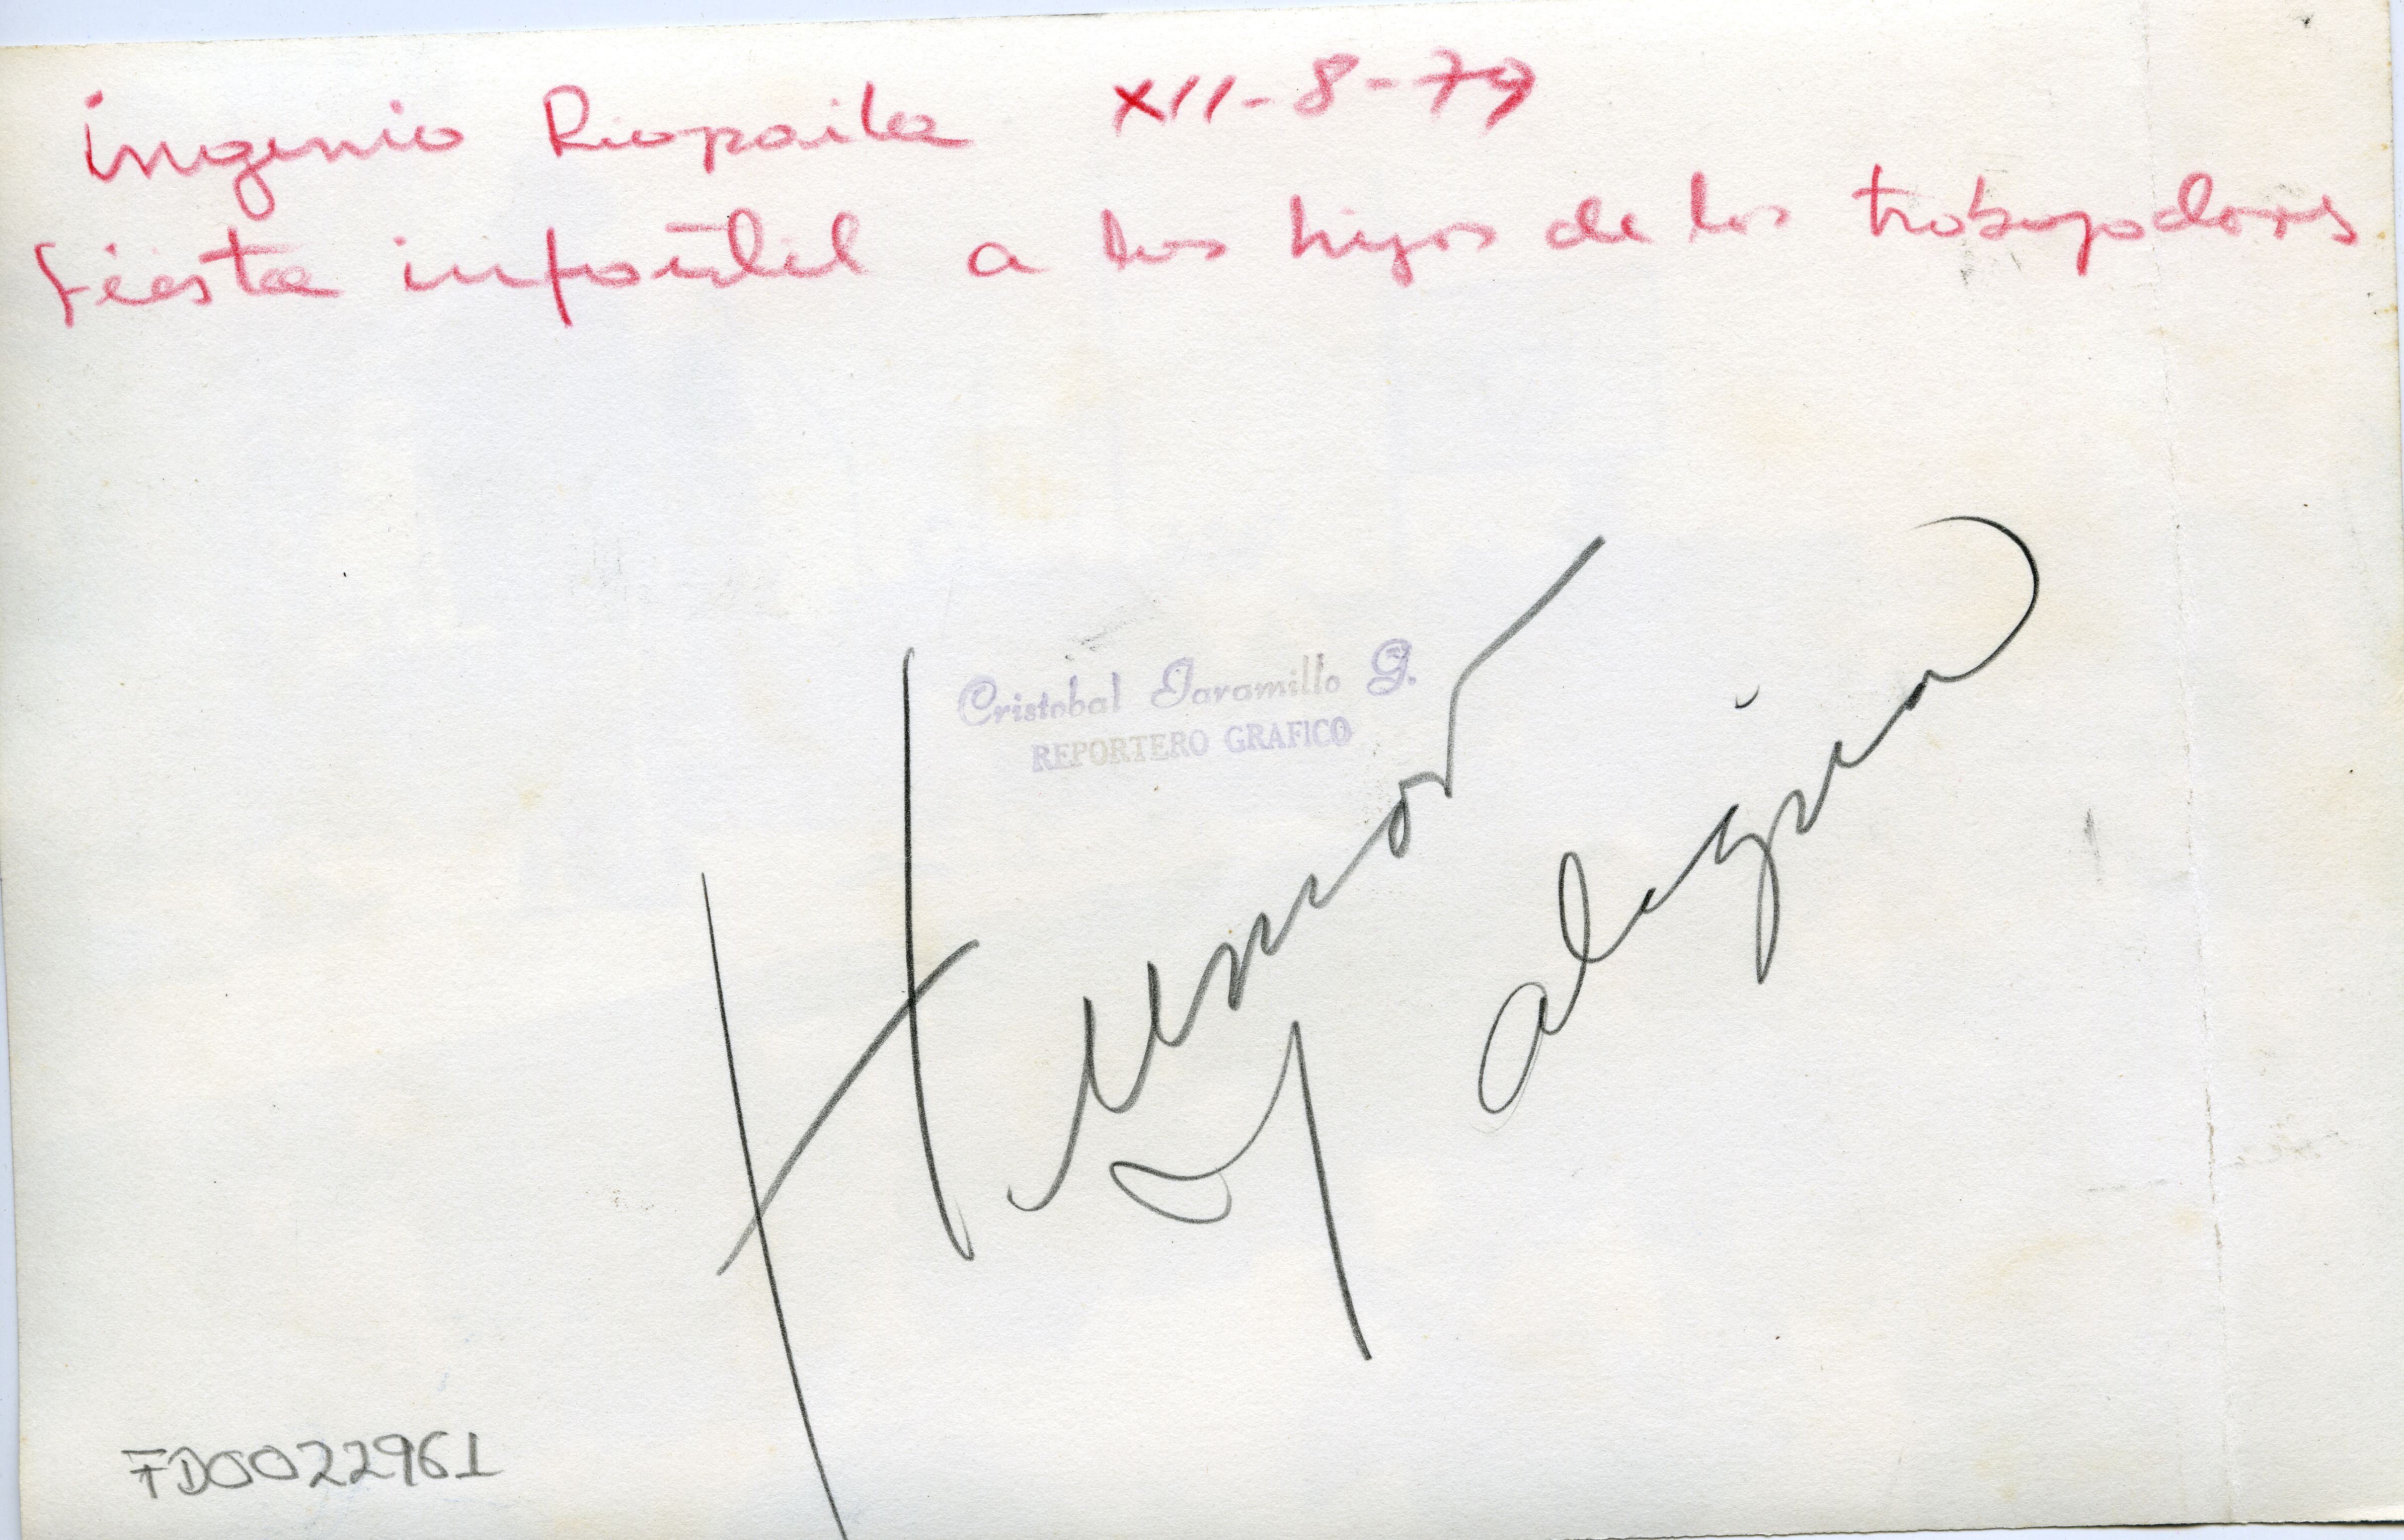 Ingenio Riopaila XII-8-79
fiesta infantil a los hijos de los trabajadores
Cristobal Jaramillo G.
REPORTERO GRAFICO
Humor
y alegria
FD0022961